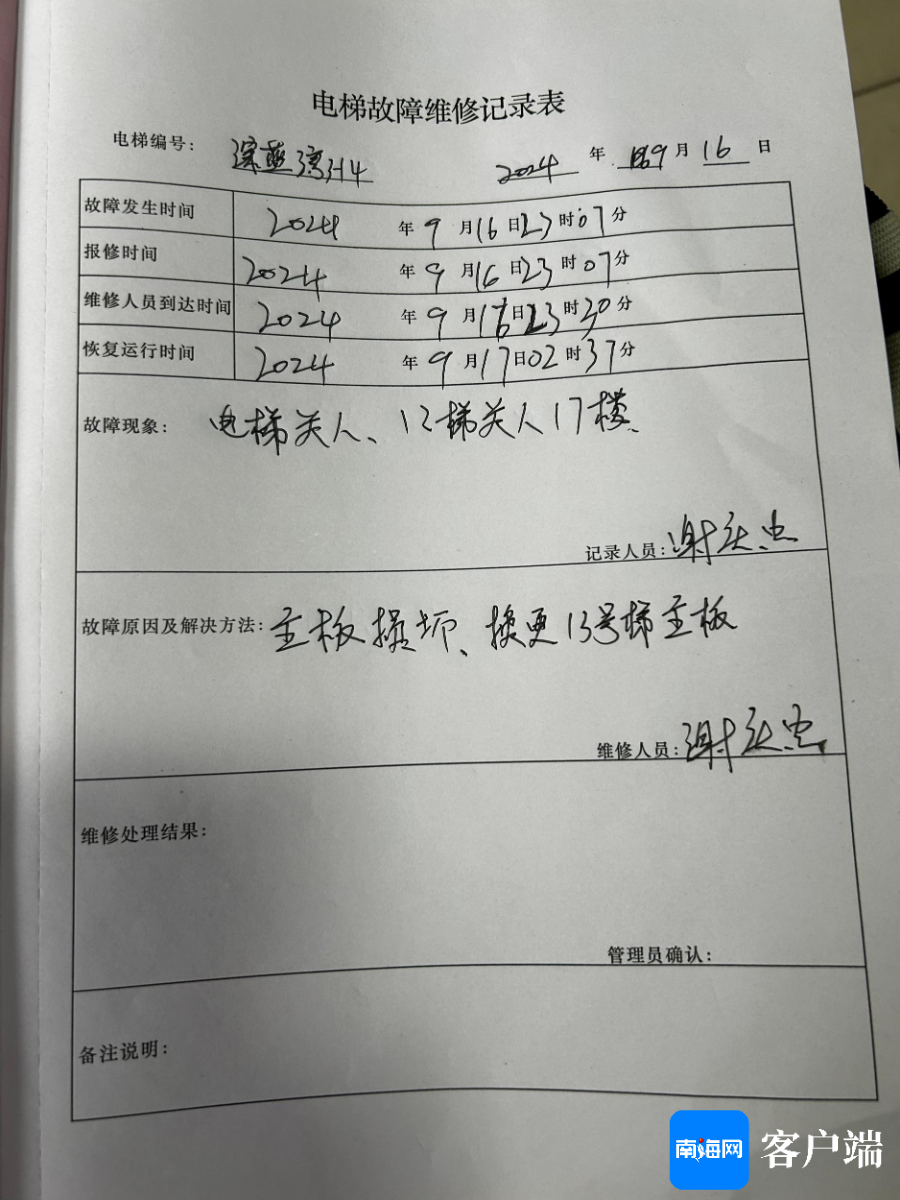 电梯故障维修记录表
电梯编号:
2024 年 9 月 16 日
故障发生时间 2024 年 9 月 16 日 23 时 07 分
报修时间 2024 年 9 月 16 日 23 时 07 分
维修人员到达时间 2024 年 9 月 16 日 23 时 30 分
恢复运行时间 2024 年 9 月 17 日 02 时 37 分
故障现象: 电梯关人、12梯关人17楼、
记录人员: 谢庆忠
故障原因及解决方法: 主板损坏、换更13号梯主板
维修人员: 谢庆忠
维修处理结果:
管理员确认:
备注说明:
南海网 客户端